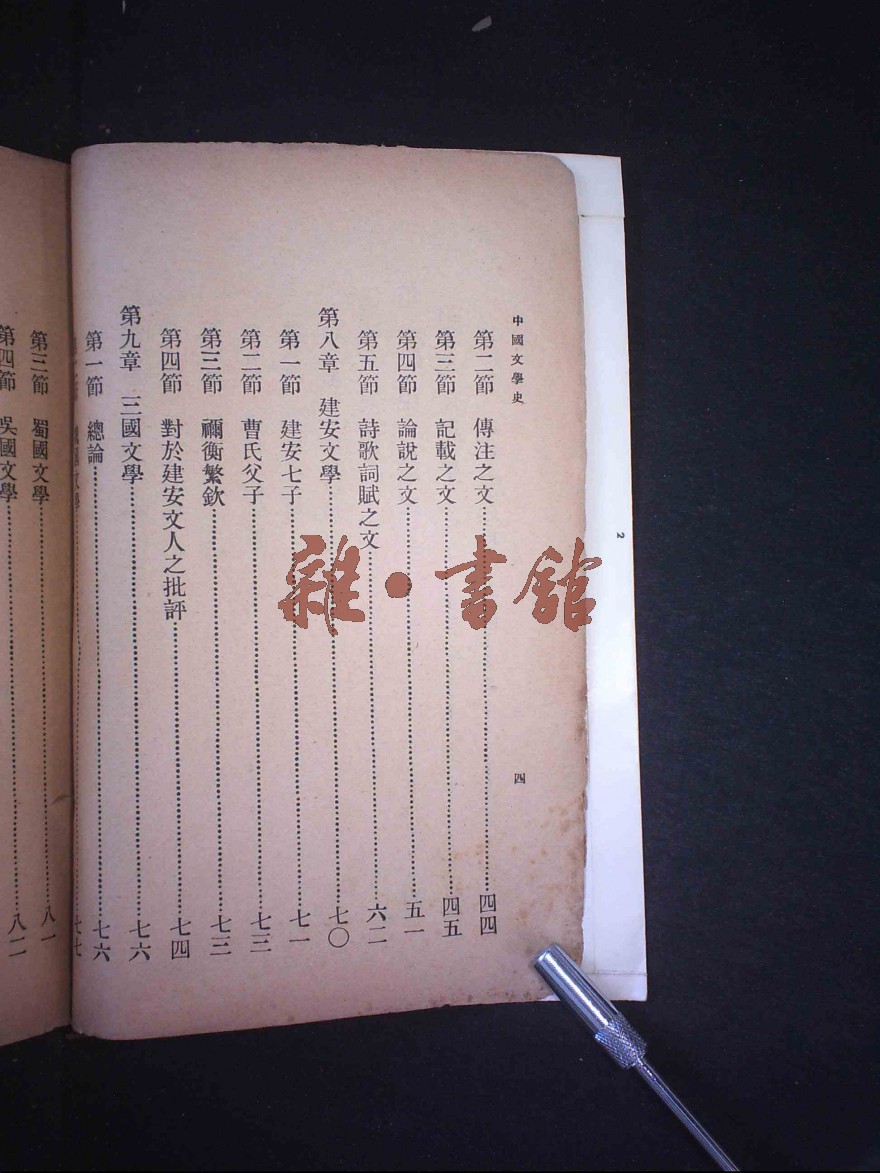 中國文學史
四
第二節 傳注之文……四四
第三節 記載之文……四五
第四節 論說之文……五一
第五節 詩歌詞賦之文……六二
第八章 建安文學……七〇
第一節 建安七子……七一
第二節 曹氏父子……七三
第三節 禰衡繁欽……七三
第四節 對於建安文人之批評……七四
第九章 三國文學……七六
第一節 總論……七六
文學……七七
第三節 蜀國文學……八一
第四節 吳國文學……八二
2
雜·書館